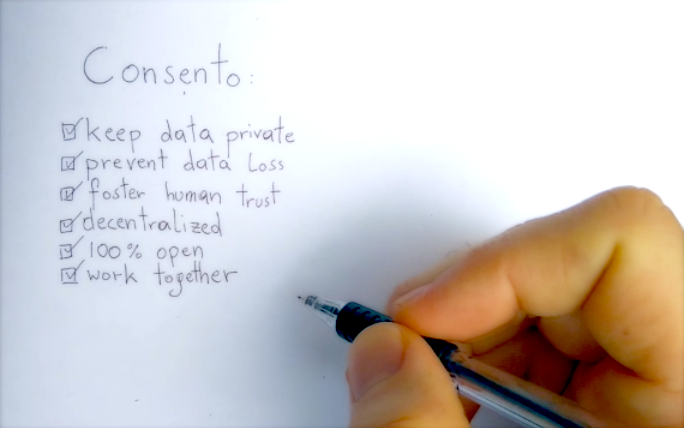 Consento:
keep data private
prevent data Loss
foster human trust
decentralized
100% open
work together